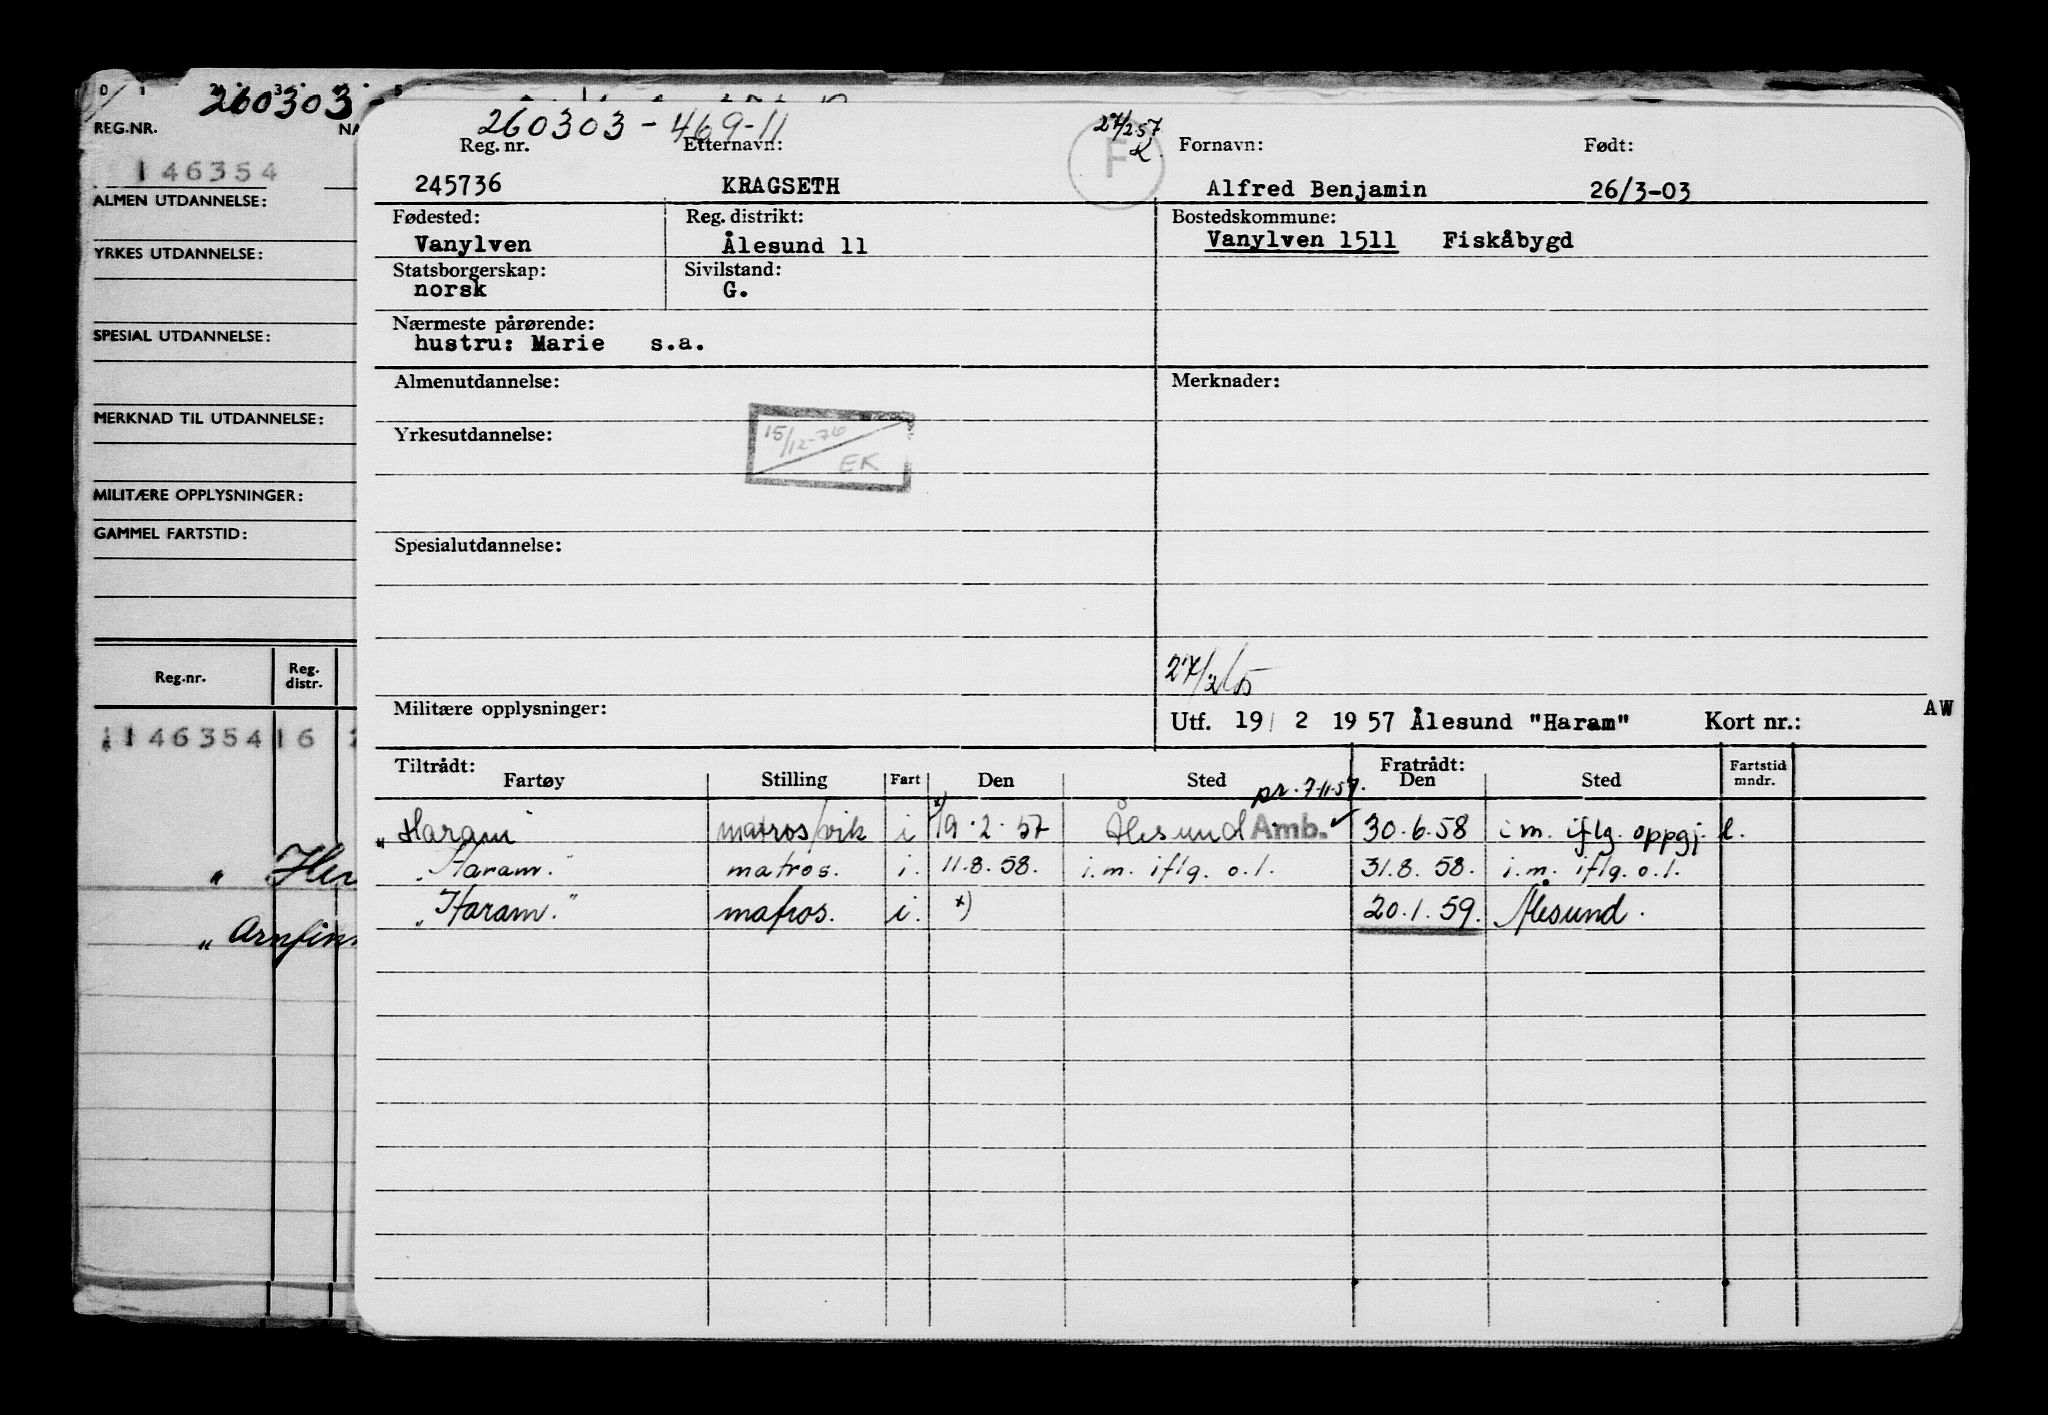 0 1 2 3 5
260303-
REG.NR.
146354
ALMEN UTDANNELSE:
YRKES UTDANNELSE:
SPESIAL UTDANNELSE:
MERKNAD TIL UTDANNELSE:
MILITÆRE OPPLYSNINGER:
GAMMEL FARTSTID:
Reg.nr. Reg. distr.
1146354 16
" Her
" Arnfinn
260303-469-11 27/2 57 K.
F
Reg. nr. Etternavn: Fornavn: Født:
245736 KRAGSETH Alfred Benjamin 26/3-03
Fødested: Reg. distrikt: Bostedskommune:
Vanylven Ålesund 11 Vanylven 1511 Fiskåbygd
Statsborgerskap: Sivilstand:
norsk G.
Nærmeste pårørende:
hustru: Marie s.a.
Almenutdannelse: Merknader:
Yrkesutdannelse: 15/12-76 EK
Spesialutdannelse:
27/2
Militære opplysninger: Utf. 19/ 2 1957 Ålesund "Haram" Kort nr.: AW
Tiltrådt: Fratrådt:
Fartøy Stilling Fart Den Sted Den Sted Fartstid mndr.
pr. 7-11-57.
"Haram" matros/vik i x) 19.2.57 Ålesund Amb. ✓ 30.6.58 i.m. iflg. oppgj. l.
"Haram." matros. i. 11.8.58. i.m. iflg. o.l. 31.8.58. i.m. iflg. o.l.
"Haram." matros. i. x) 20.1.59. Ålesund.